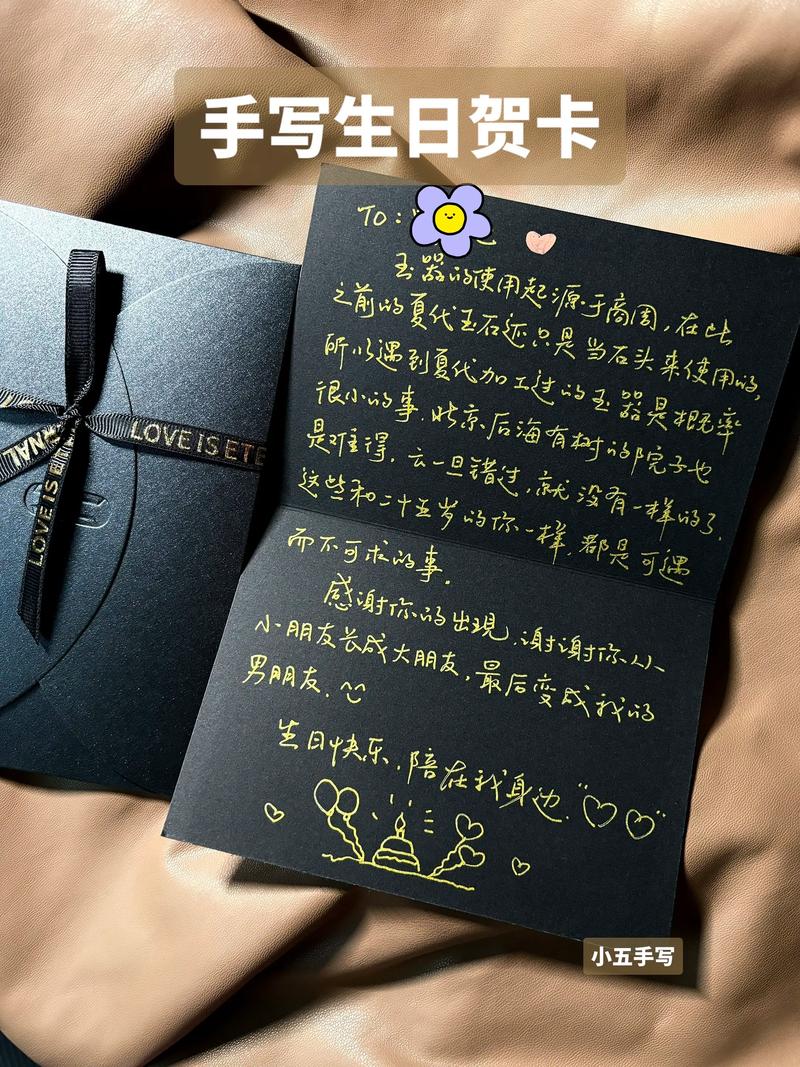 手写生日贺卡
To:
玉器的使用起源于商周,在此
之前的夏代玉石还只是当石头来使用的,
所以遇到夏代加工过的玉器是概率
很小的事.北京后海有树的院子也
是难得.云一旦错过,就没有一样的了.
这些和二十五岁的你一样.都是可遇
而不可求的事.
感谢你的出现.谢谢你从
小朋友长成大朋友,最后变成我的
男朋友.
生日快乐.陪在我身边."♡♡"
LOVE IS ETE
NAL
LOVE IS
小五手写